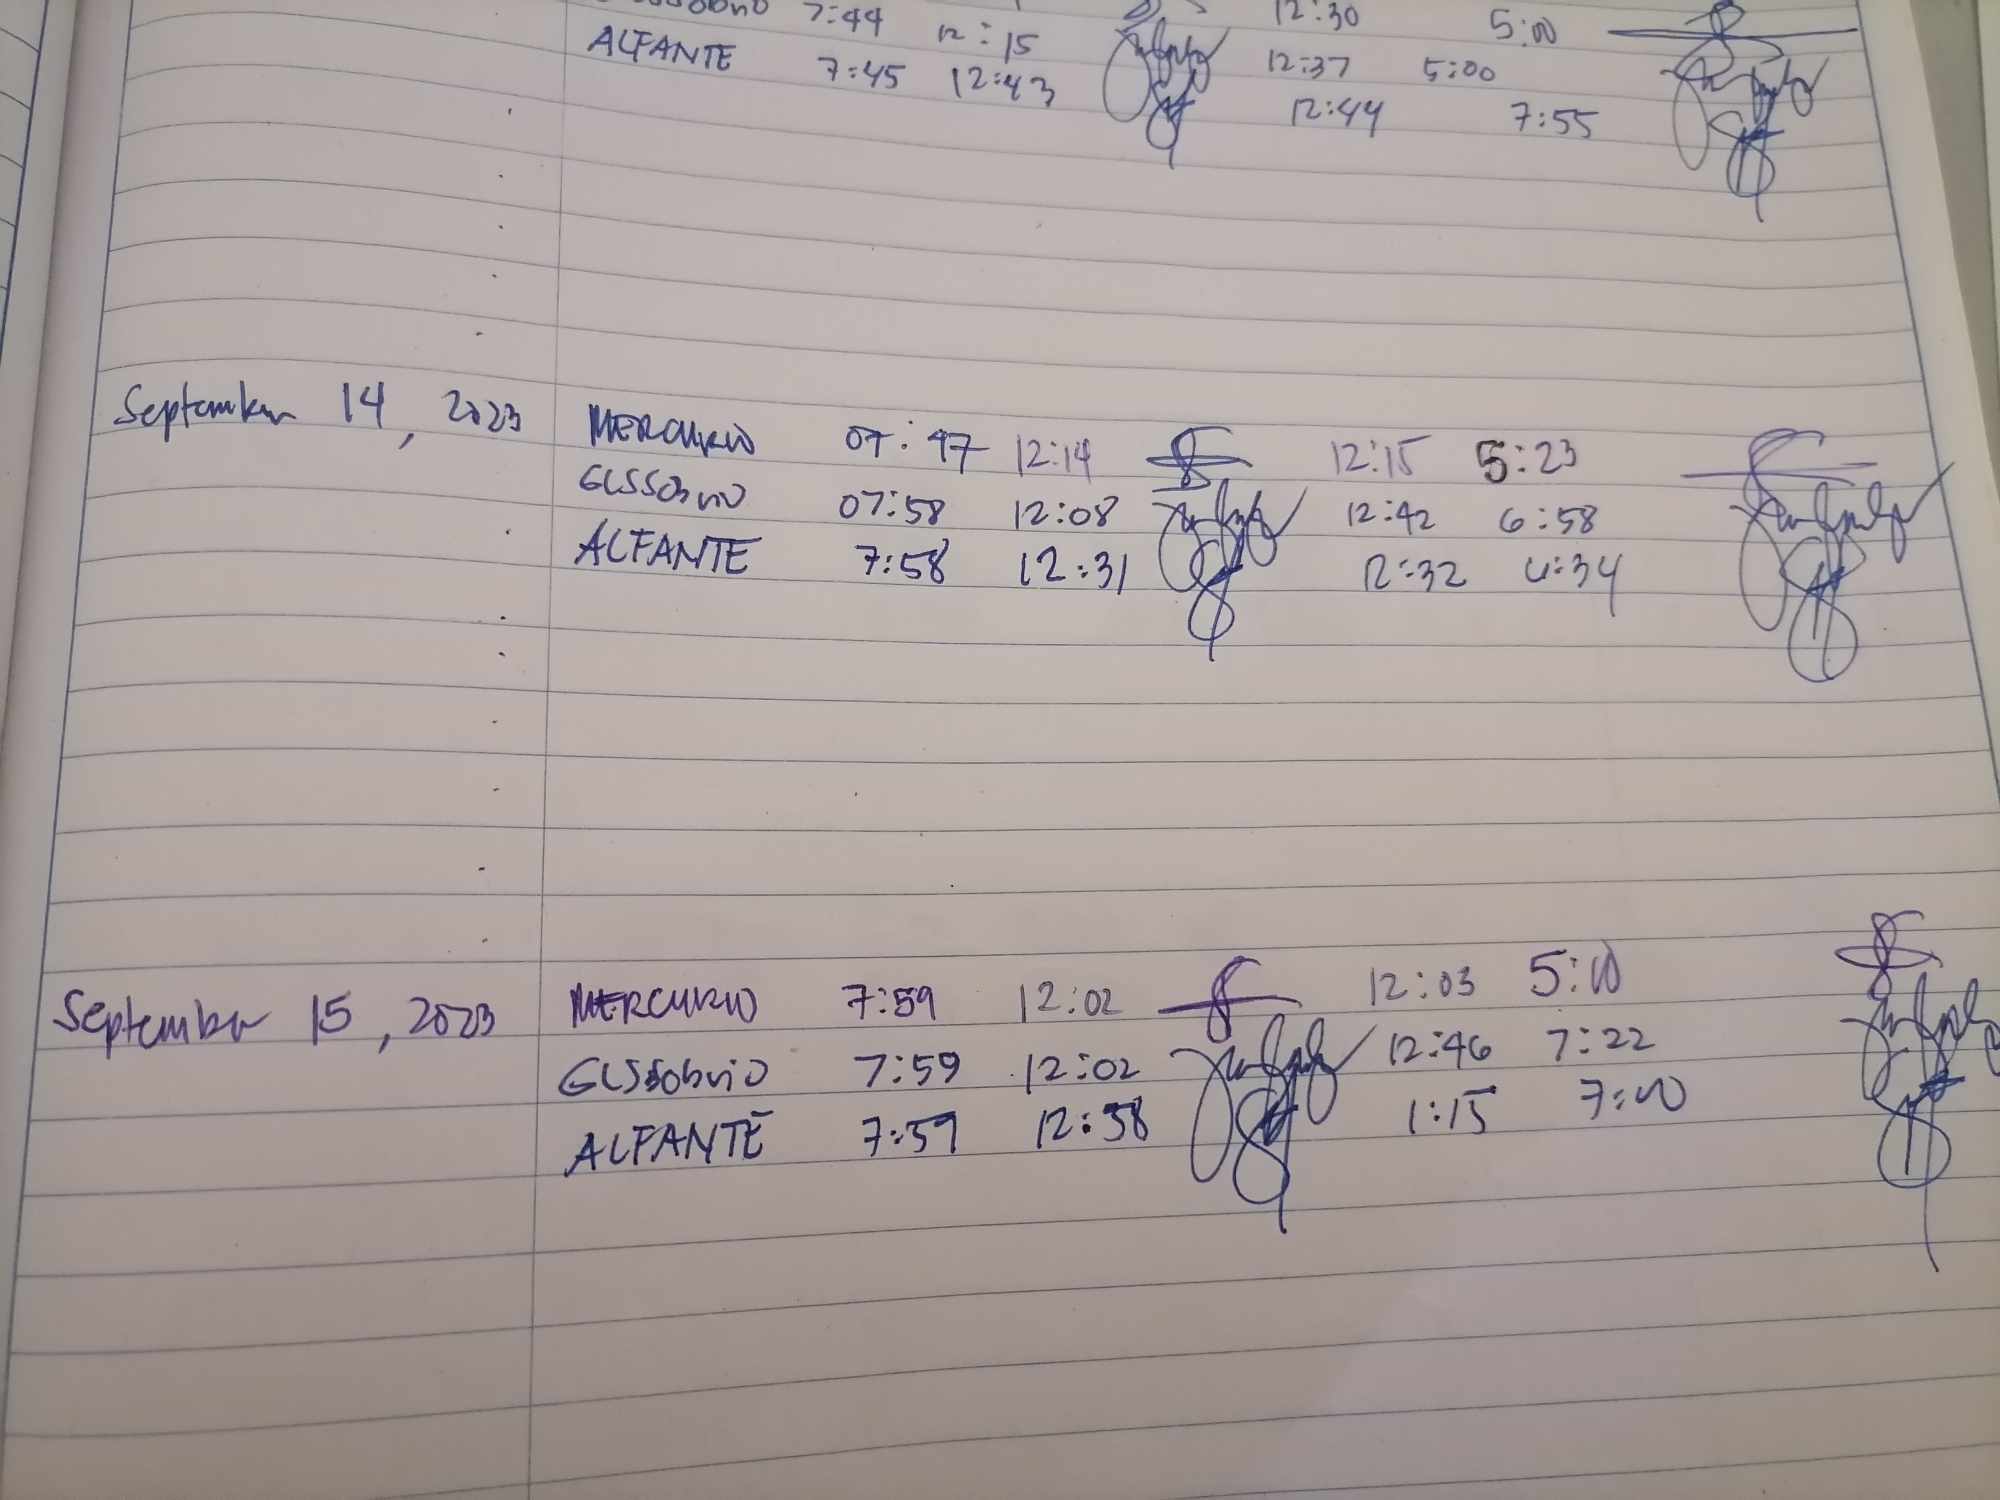 7:44 12:15 12:30 5:00
ALFANTE 7:45 12:43 12:37 5:00
12:44 7:55
September 14, 2023 MERCURIO 07:47 12:14 12:15 5:23
07:58 12:08 12:42 6:58
ALFANTE 7:58 12:31 12:32 4:34
September 15, 2023 MERCURIO 7:59 12:02 12:03 5:00
7:59 12:02 12:46 7:22
ALFANTE 7:59 12:58 1:15 7:00